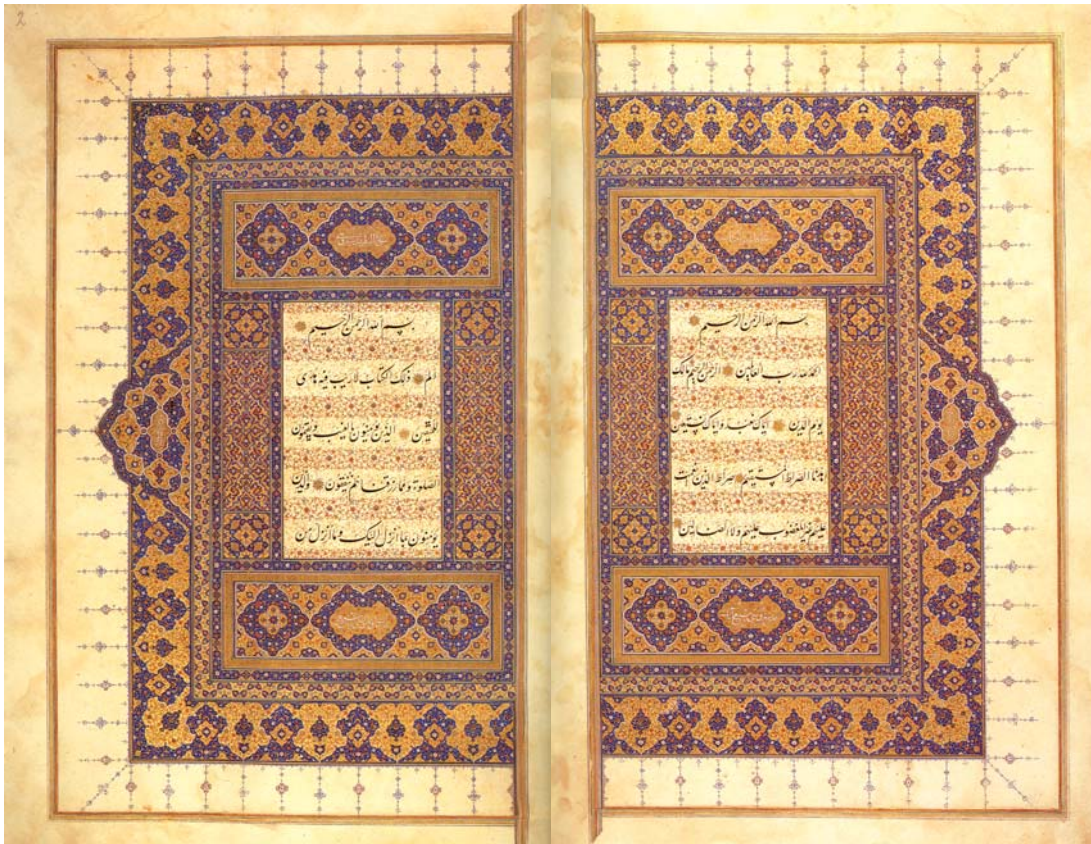 بسم الله الرحمن الرحيم
الحمد لله رب العالمين الرحمن الرحيم مالك
يوم الدين اياك نعبد واياك نستعين
اهدنا الصراط المستقيم صراط الذين انعمت
عليهم غير المغضوب عليهم ولا الضالين
2
بسم الله الرحمن الرحيم
الم ذلك الكتاب لا ريب فيه هدى
للمتقين الذين يؤمنون بالغيب ويقيمون
الصلوة ومما رزقناهم ينفقون والذين
يؤمنون بما انزل اليك وما انزل من